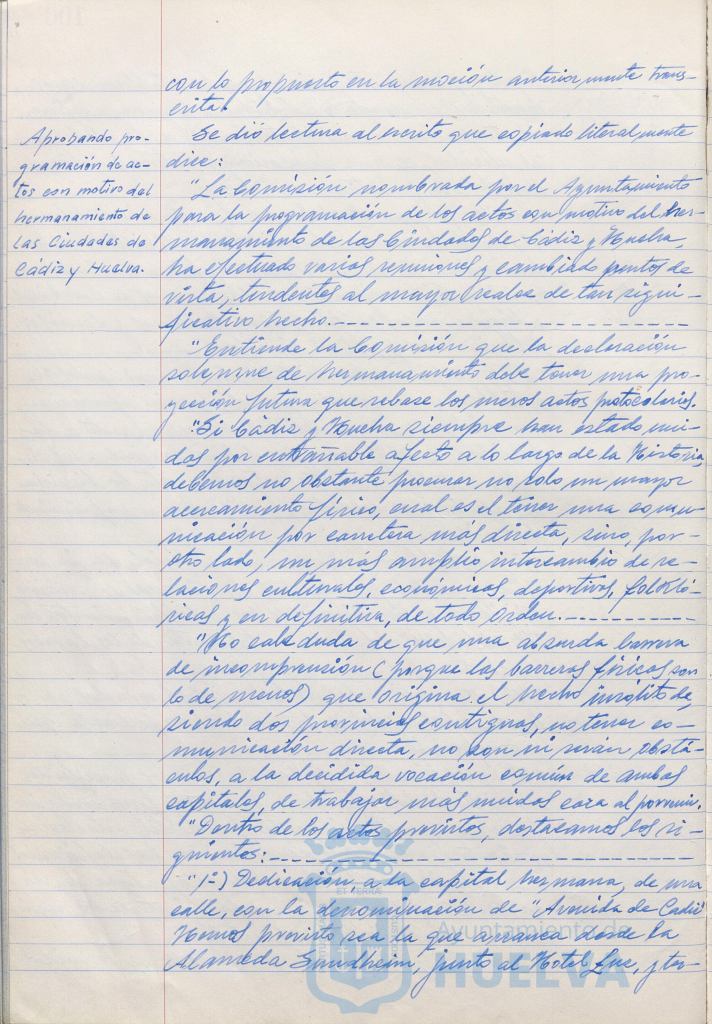 con lo propuesto en la moción anteriormente trans-
crita.
Aprobando pro-
gramación de ac-
tos con motivo del
hermanamiento de
las Ciudades de
Cádiz y Huelva.
Se dió lectura al escrito que copiado literalmente
dice:
"La Comisión nombrada por el Ayuntamiento
para la programación de los actos con motivo del her-
manamiento de las Ciudades de Cádiz y Huelva,
ha efectuado varias reuniones y cambiado puntos de
vista, tendentes al mayor realce de tan signi-
ficativo hecho.-------------------------
"Entiende la Comisión que la declaración
solemne de hermanamiento debe tener una pro-
yección futura que rebase los meros actos protocolarios.
"Si Cádiz y Huelva siempre han estado uni-
dos por entrañable afecto a lo largo de la Historia,
debemos no obstante procurar no solo un mayor
acercamiento físico, cual es el tener una comu-
nicación por carretera más directa, sino, por
otro lado, un más amplio intercambio de re-
laciones culturales, económicas, deportivas, folkló-
ricas y en definitiva, de todo orden.-----------
"No cabe duda de que una absurda barrera
de incomprensión (porque las barreras físicas son
lo de menos) que origina el hecho insólito de,
siendo dos provincias contiguas, no tener co-
municación directa, no son ni serán obstá-
culos, a la decidida vocación común de ambas
capitales, de trabajar más unidos cara al porvenir.
"Dentro de los actos previstos, destacamos los si-
guientes:------------------------------
"1º) Dedicación, a la capital hermana, de una
calle, con la denominación de "Avenida de Cádiz"
Hemos previsto sea la que arranca desde la
Alameda Sundheim, junto al Hotel Luz, y ter-
Ayuntamiento de
HUELVA